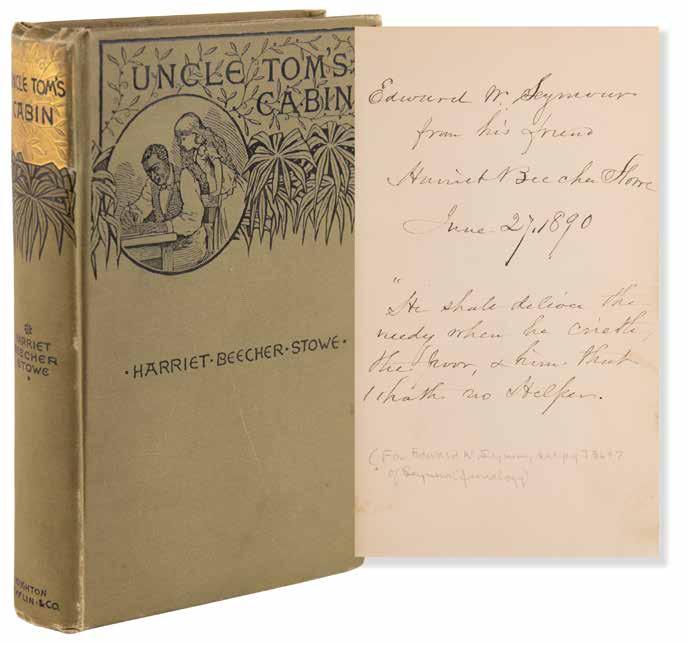 UNCLE TOM'S
CABIN
HARRIET
BEECHER
STOWE
HOUGHTON
MIFFLIN & CO.
UNCLE TOM'S
CABIN
· HARRIET · BEECHER · STOWE ·
Edward W. Seymour
from his friend
Harriet Beecher Stowe
June 27, 1890
"He shall deliver the
needy when he crieth,
the poor, & him that
hath no Helper.
(For Edward W. Seymour, see pg
of Seymour genealogy)